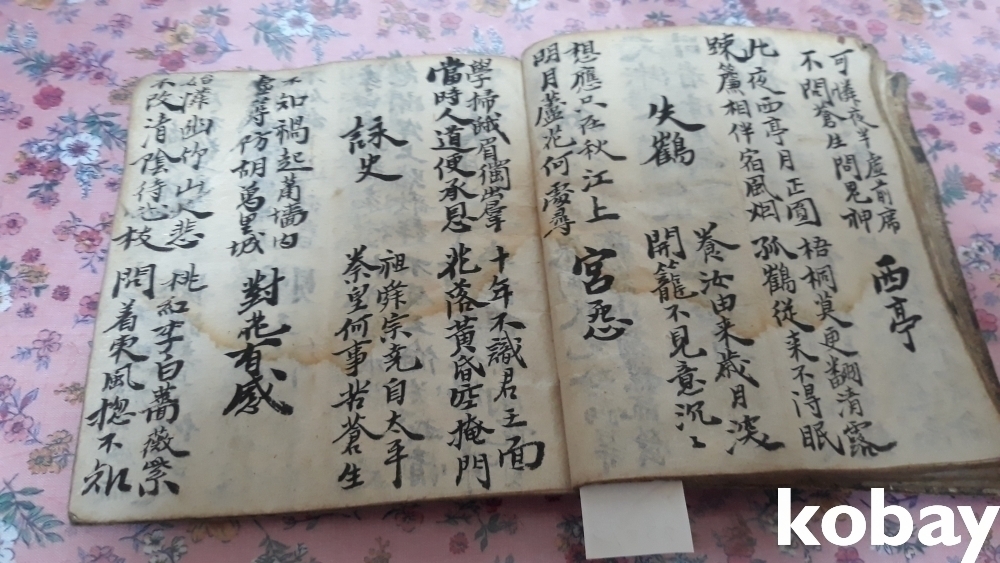 可憐夜半虛前席
不問蒼生問鬼神
西亭
此夜西亭月正圓
疎簾相伴宿風烟
梧桐莫更翻清露
孤鶴從来不得眠
失鶴
養汝由来歲月深
開籠不見意沉々
想應只在秋江上
明月蘆花何處尋
宮怨
學掃蛾眉獨出羣
當時人道便承恩
十年不識君王面
花落黃昏空掩門
詠史
祖舜宗堯自太平
秦皇何事苦蒼生
不知禍起蕭墻內
虛築防胡萬里城
對花有感
桃紅李白薔薇紫
問着東風摠不知
幽竹山
不改清陰待
kobay